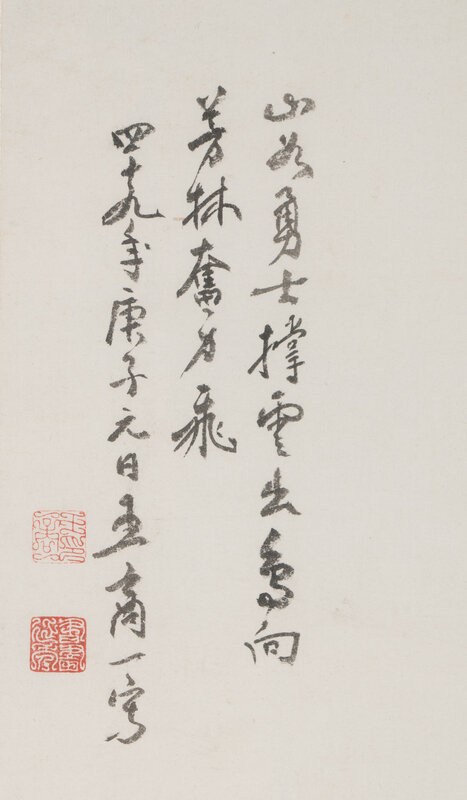 山如勇士撐雲出鳥向
芳林奮力飛
四十九年庚子元日王商一寫